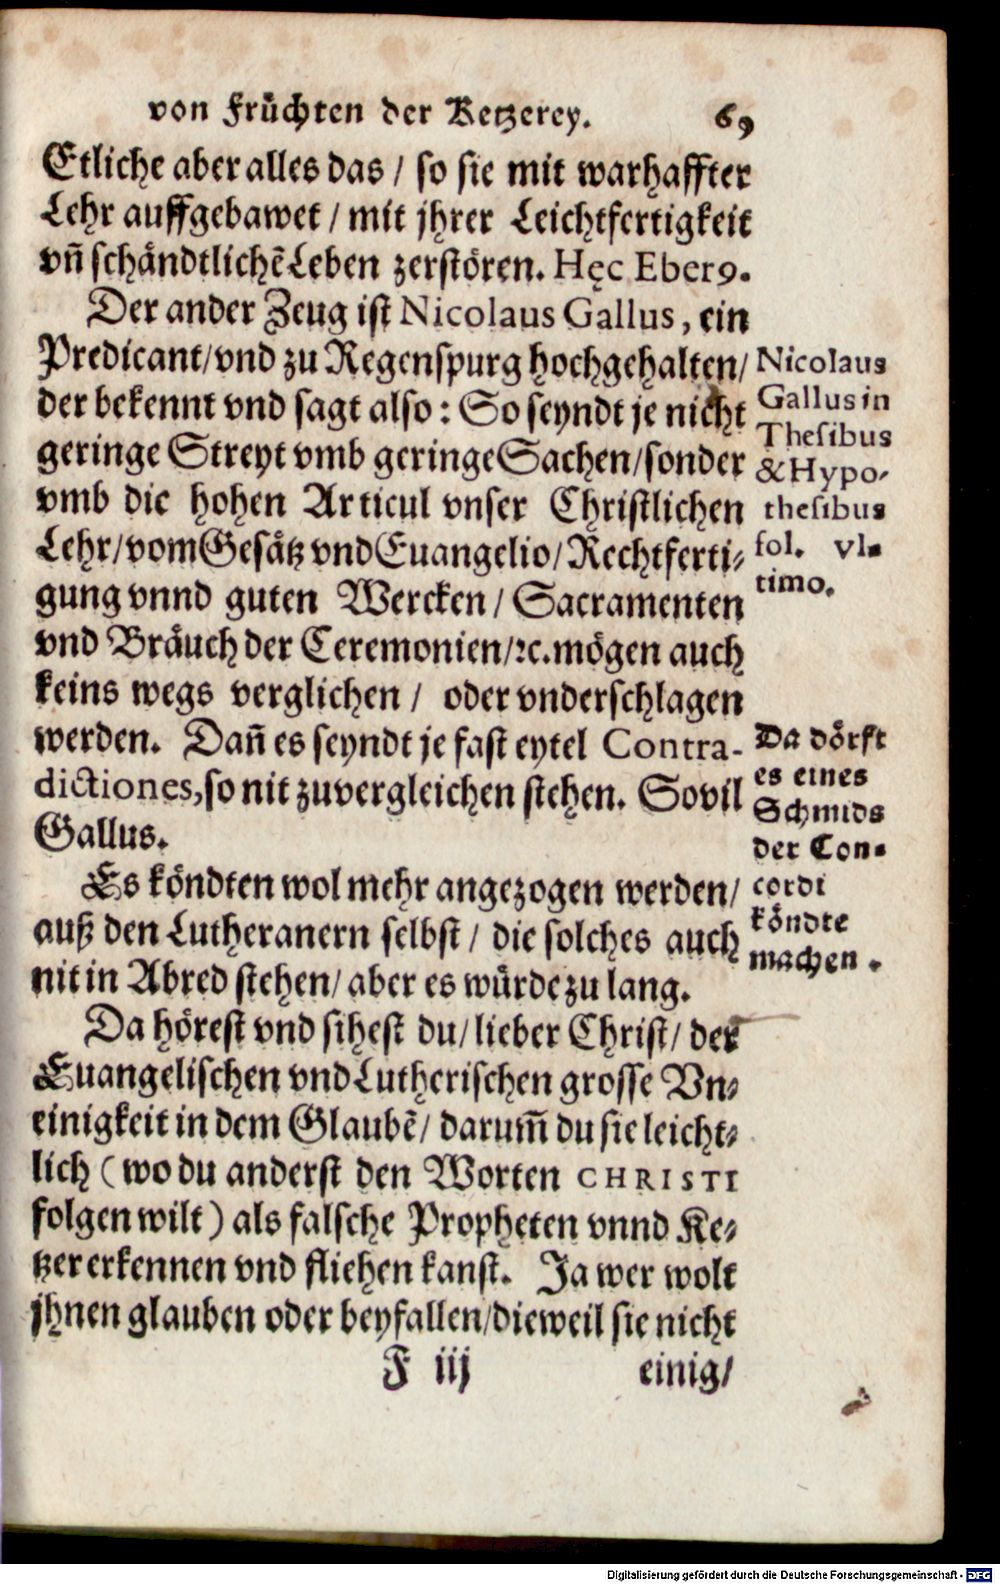 von Früchten der Ketzerey. 69
Etliche aber alles das / so sie mit warhaffter
Lehr auffgebawet / mit jhrer Leichtfertigkeit
vñ schändtlichẽ Leben zerstören. Hęc Eber9.
Der ander Zeug ist Nicolaus Gallus, ein
Predicant/vnd zu Regenspurg hochgehalten/
der bekennt vnd sagt also: So seyndt je nicht
geringe Streyt vmb geringe Sachen/sonder
vmb die hohen Articul vnser Christlichen
Lehr/vom Gesätz vnd Euangelio/Rechtferti-
gung vnnd guten Wercken / Sacramenten
vnd Bräuch der Ceremonien/ꝛc.mögen auch
keins wegs verglichen / oder vnderschlagen
werden. Dañ es seyndt je fast eytel Contra-
dictiones,so nit zuvergleichen stehen. Sovil
Gallus.
Nicolaus
Gallus in
Thesibus
& Hypo-
thesibus
fol. vl-
timo.
Da dörft
es eines
Schmids
der Con-
cordi
köndte
machen .
Es köndten wol mehr angezogen werden/
auß den Lutheranern selbst / die solches auch
nit in Abred stehen/ aber es würde zu lang.
Da hörest vnd sihest du/ lieber Christ/ der
Euangelischen vnd Lutherischen grosse Vn-
einigkeit in dem Glaubẽ/ darum̃ du sie leicht-
lich (wo du anderst den Worten CHRISTI
folgen wilt) als falsche Propheten vnnd Ke-
tzer erkennen vnd fliehen kanst. Ja wer wolt
jhnen glauben oder beyfallen/dieweil sie nicht
F iij einig/
Digitalisierung gefördert durch die Deutsche Forschungsgemeinschaft - DFG